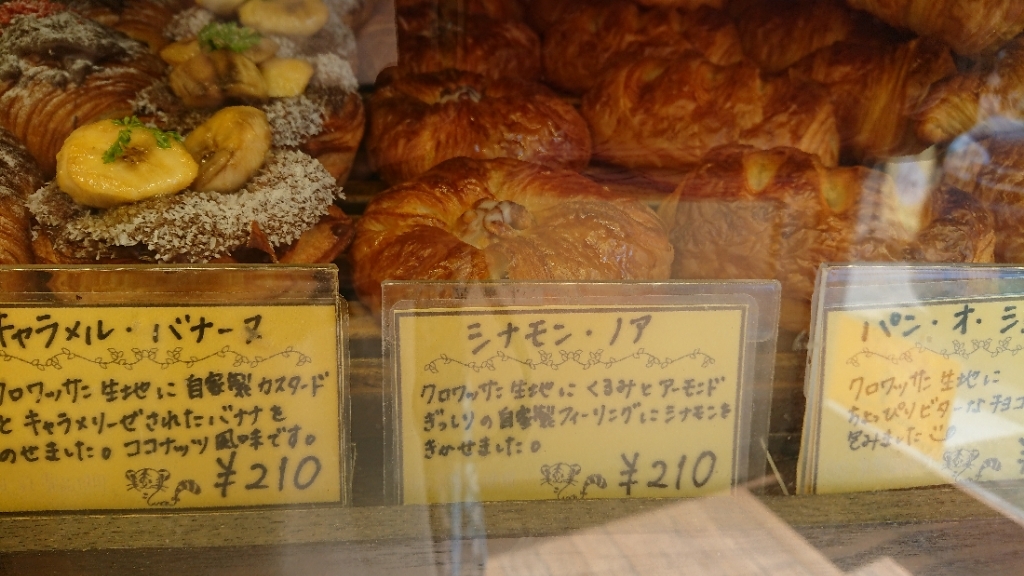 キャラメル・バナーヌ
クロワッサン生地に自家製カスタード
とキャラメリーゼされたバナナを
のせました。ココナッツ風味です。
¥210
シナモン・ノア
クロワッサン生地にくるみとアーモンド
ぎっしりの自家製フィーリングにシナモンを
きかせました。
¥210
パン・オ・シ
クロワッサン生地に
ちょっぴりビターなチョコ
包みました